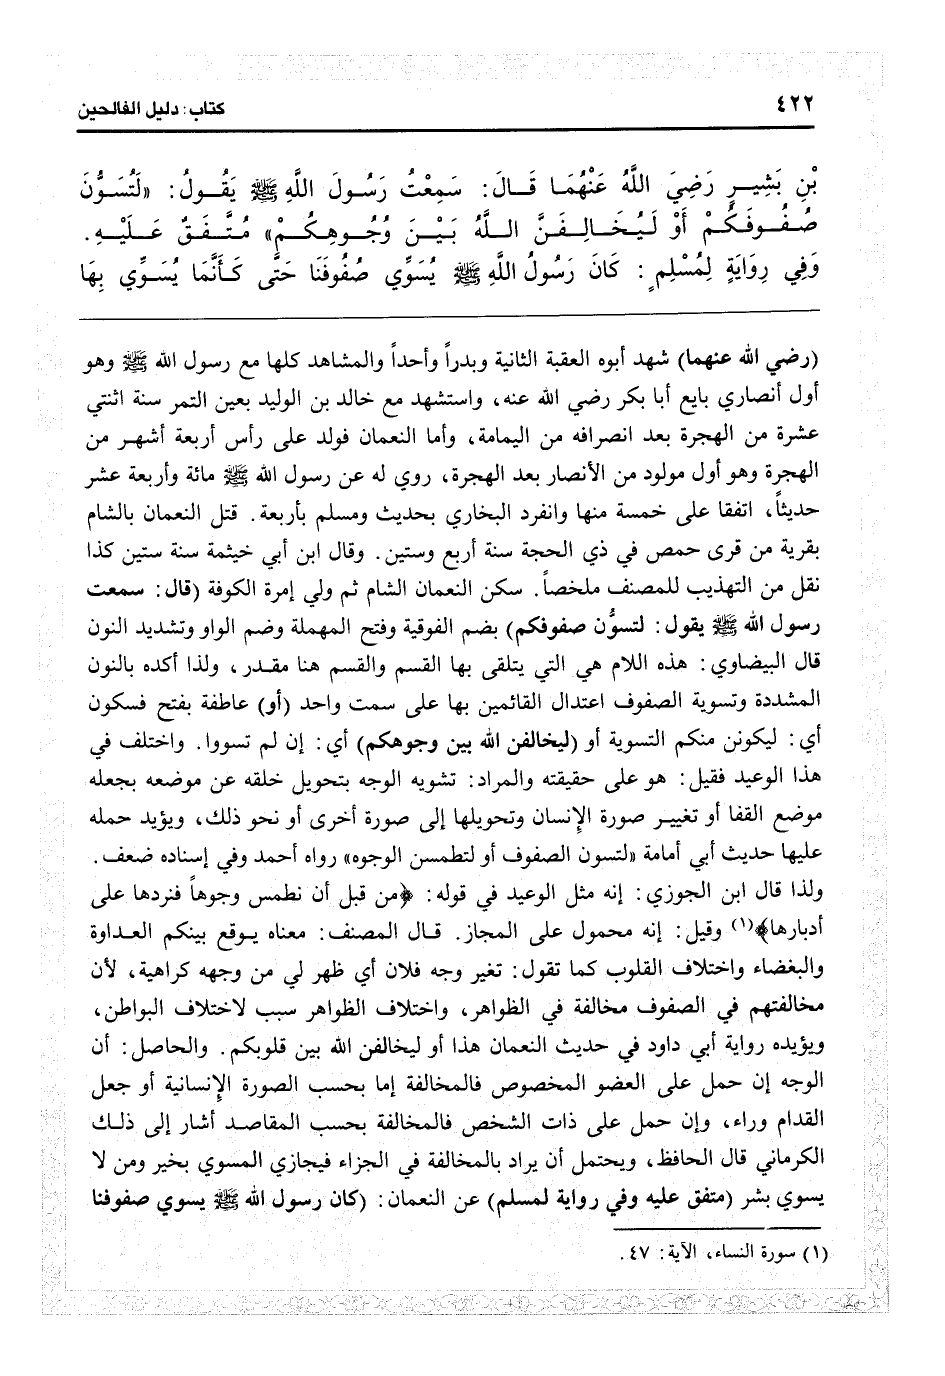 ٤٢٢
كتاب: دليل الفالحين
بْنِ بَشِيرٍ رَضِيَ اللَّهُ عَنْهُمَا قَالَ: سَمِعْتُ رَسُولَ اللَّهِ ﷺ يَقُولُ: «لَتُسَوُّنَّ
صُفُوفَكُمْ أَوْ لَيُخَالِفَنَّ اللَّهُ بَيْنَ وُجُوهِكُمْ» مُتَّفَقٌ عَلَيْهِ.
وَفِي رِوَايَةٍ لِمُسْلِمٍ: كَانَ رَسُولُ اللَّهِ ﷺ يُسَوِّي صُفُوفَنَا حَتَّى كَأَنَّمَا يُسَوِّي بِهَا
(رضي الله عنهما) شهد أبوه العقبة الثانية وبدراً وأحداً والمشاهد كلها مع رسول الله ﷺ وهو
أول أنصاري بايع أبا بكر رضي الله عنه، واستشهد مع خالد بن الوليد بعين التمر سنة اثنتي
عشرة من الهجرة بعد انصرافه من اليمامة، وأما النعمان فولد على رأس أربعة أشهر من
الهجرة وهو أول مولود من الأنصار بعد الهجرة، روي له عن رسول الله ﷺ مائة وأربعة عشر
حديثاً، اتفقا على خمسة منها وانفرد البخاري بحديث ومسلم بأربعة. قتل النعمان بالشام
بقرية من قرى حمص في ذي الحجة سنة أربع وستين. وقال ابن أبي خيثمة سنة ستين كذا
نقل من التهذيب للمصنف ملخصاً. سكن النعمان الشام ثم ولي إمرة الكوفة (قال: سمعت
رسول الله ﷺ يقول: لتسوُّن صفوفكم) بضم الفوقية وفتح المهملة وضم الواو وتشديد النون
قال البيضاوي: هذه اللام هي التي يتلقى بها القسم والقسم هنا مقدر، ولذا أكده بالنون
المشددة وتسوية الصفوف اعتدال القائمين بها على سمت واحد (أو) عاطفة بفتح فسكون
أي: ليكونن منكم التسوية أو (ليخالفن الله بين وجوهكم) أي: إن لم تسووا. واختلف في
هذا الوعيد فقيل: هو على حقيقته والمراد: تشويه الوجه بتحويل خلقه عن موضعه بجعله
موضع القفا أو تغيير صورة الإنسان وتحويلها إلى صورة أخرى أو نحو ذلك، ويؤيد حمله
عليها حديث أبي أمامة «لتسون الصفوف أو لتطمسن الوجوه» رواه أحمد وفي إسناده ضعف.
ولذا قال ابن الجوزي: إنه مثل الوعيد في قوله: ﴿من قبل أن نطمس وجوهاً فنردها على
أدبارها﴾(١) وقيل: إنه محمول على المجاز. قال المصنف: معناه يوقع بينكم العداوة
والبغضاء واختلاف القلوب كما تقول: تغير وجه فلان أي ظهر لي من وجهه كراهية، لأن
مخالفتهم في الصفوف مخالفة في الظواهر، واختلاف الظواهر سبب لاختلاف البواطن،
ويؤيده رواية أبي داود في حديث النعمان هذا أو ليخالفن الله بين قلوبكم. والحاصل: أن
الوجه إن حمل على العضو المخصوص فالمخالفة إما بحسب الصورة الإنسانية أو جعل
القدام وراء، وإن حمل على ذات الشخص فالمخالفة بحسب المقاصد أشار إلى ذلك
الكرماني قال الحافظ، ويحتمل أن يراد بالمخالفة في الجزاء فيجازي المسوي بخير ومن لا
يسوي بشر (متفق عليه وفي رواية لمسلم) عن النعمان: (كان رسول الله ﷺ يسوي صفوفنا
(١) سورة النساء، الآية: ٤٧.